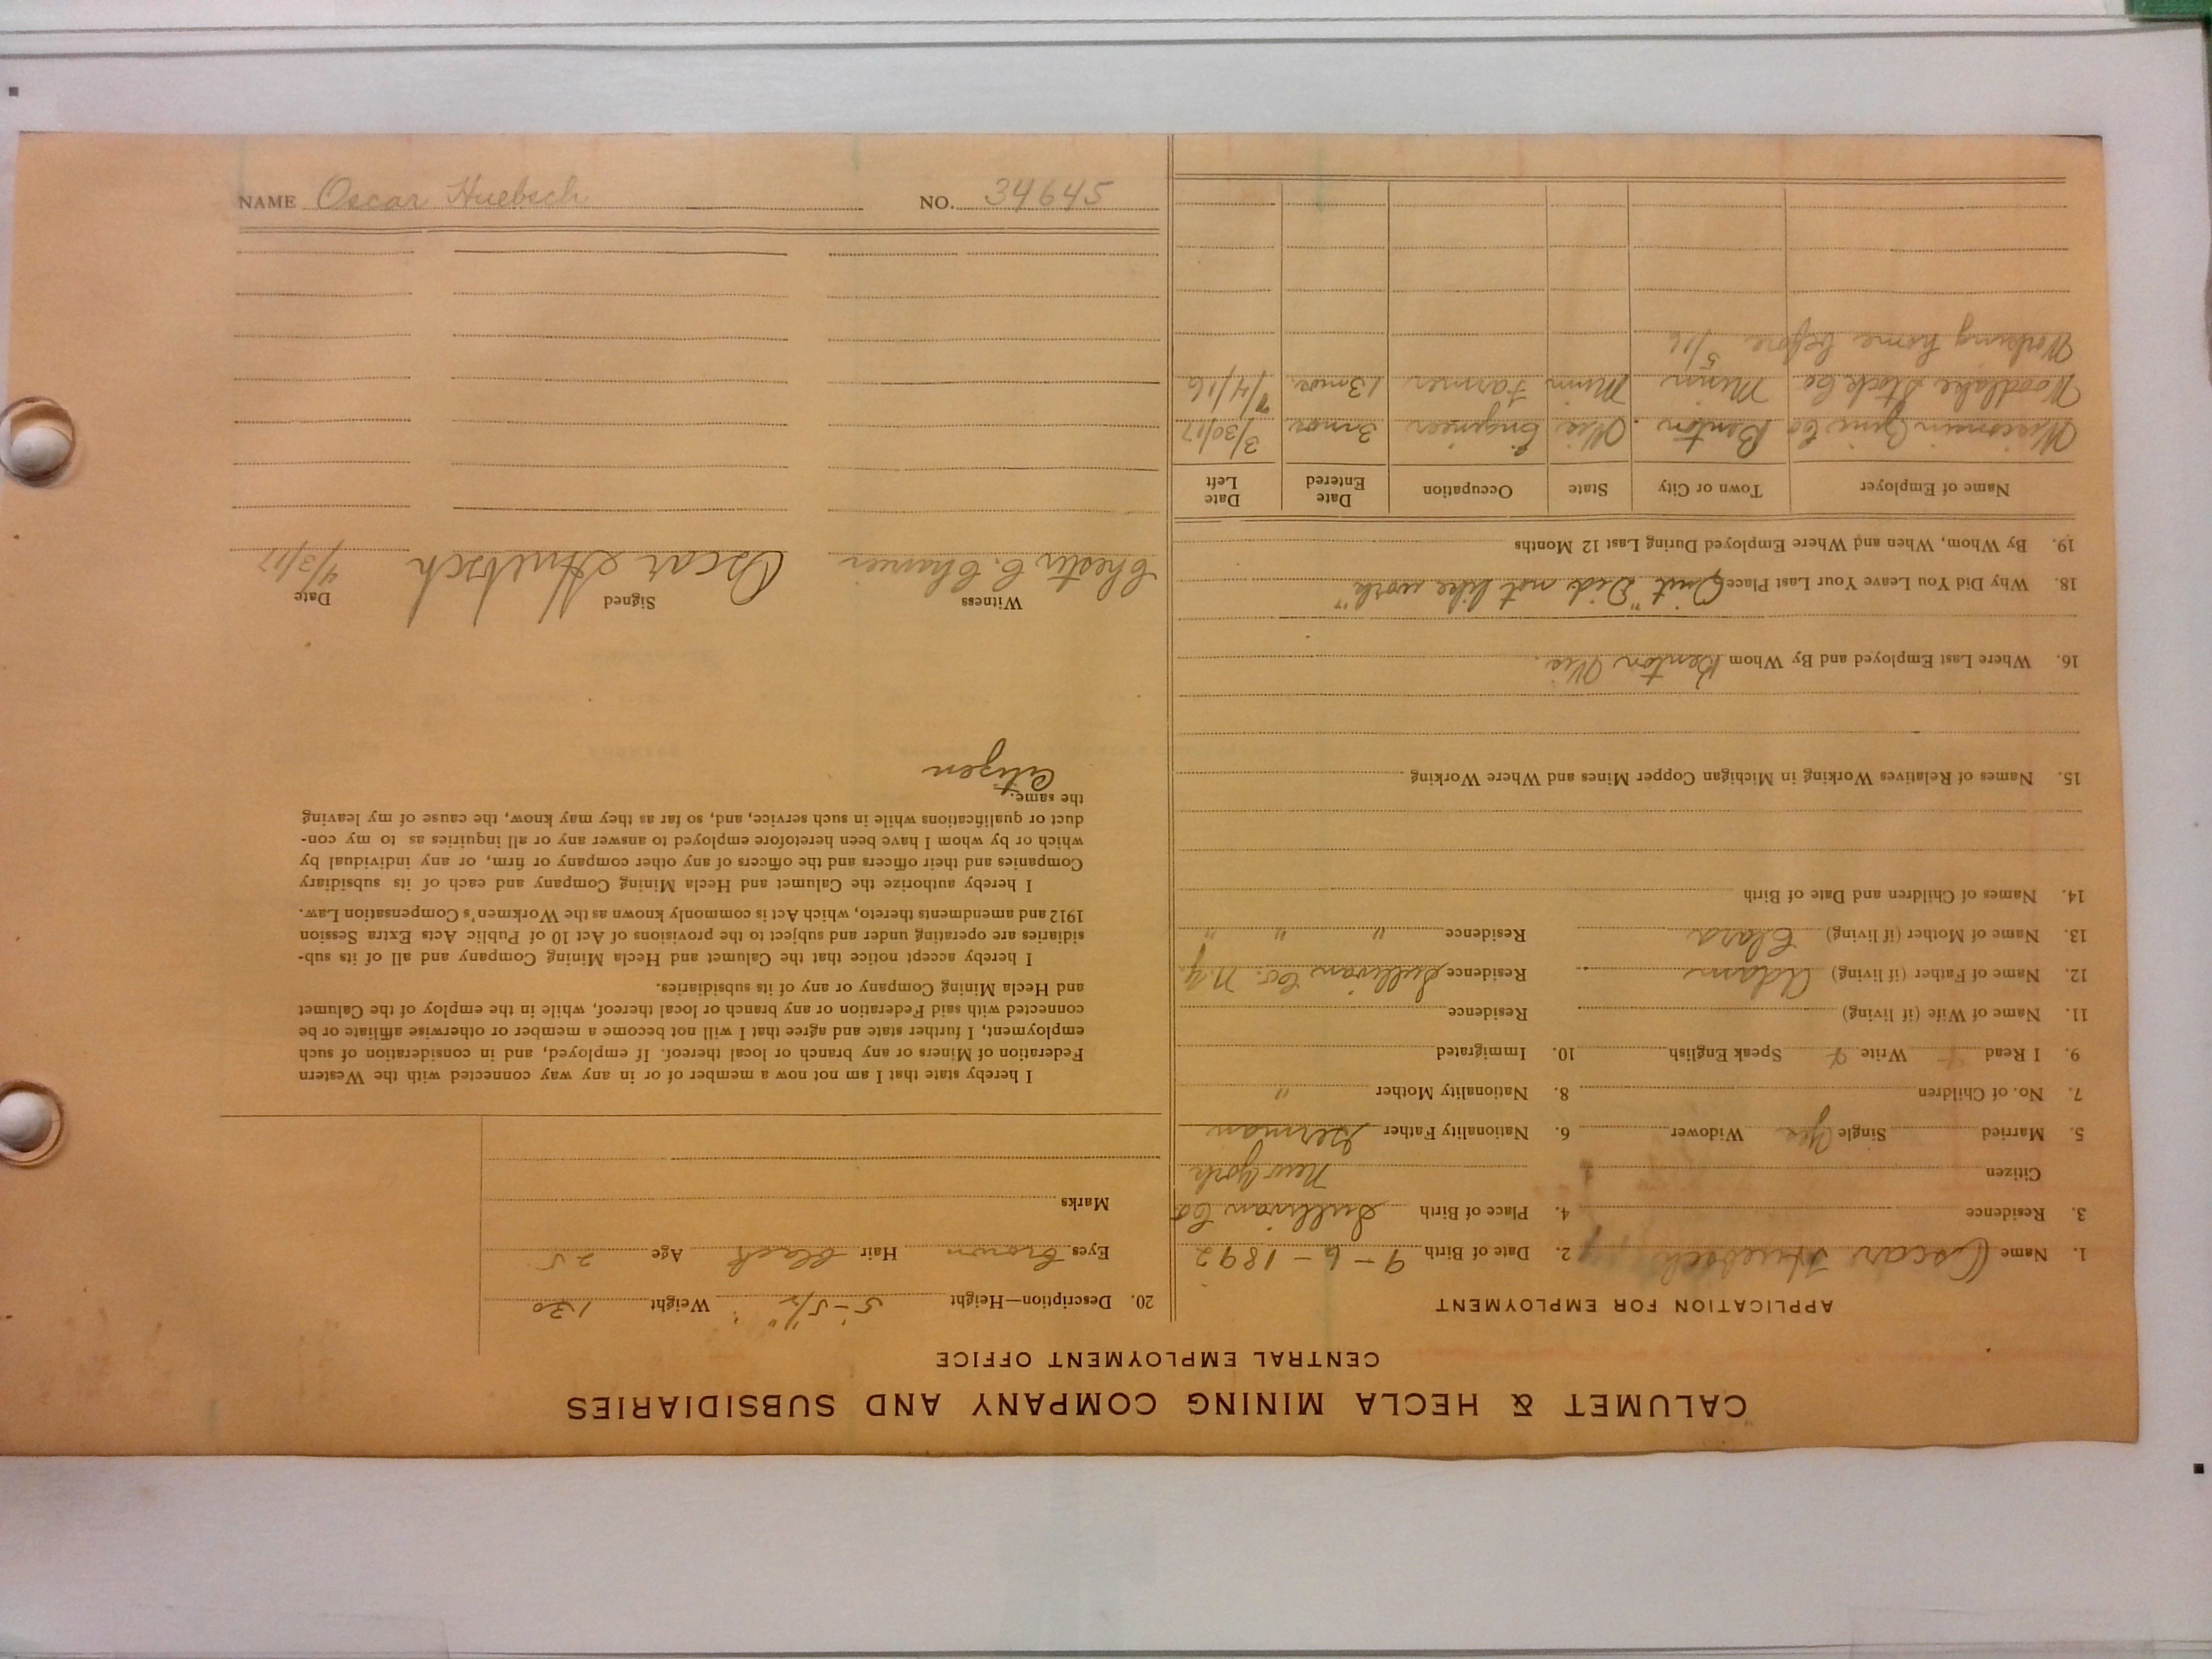 CALUMET & HECLA MINING COMPANY AND SUBSIDIARIES
CENTRAL EMPLOYMENT OFFICE
APPLICATION FOR EMPLOYMENT
1. Name Oscar Huebsch 2. Date of Birth 9-6-1892
3. Residence 4. Place of Birth Sullivan Co
Citizen New York
5. Married Single Yes Widower 6. Nationality Father German
7. No. of Children 8. Nationality Mother "
9. I Read Write Speak English 10. Immigrated
11. Name of Wife (if living) Residence
12. Name of Father (if living) Adam Residence Sullivan Co. N.Y.
13. Name of Mother (if living) Clara Residence " " "
14. Names of Children and Date of Birth
15. Names of Relatives Working in Michigan Copper Mines and Where Working
16. Where Last Employed and By Whom Benton Wis.
18. Why Did You Leave Your Last Place Quit "Did not like work"
19. By Whom, When and Where Employed During Last 12 Months
Name of Employer Town or City State Occupation Date Entered Date Left
Wisconsin Zinc Co Benton Wis Engineer 3 mos 3/30/17
Woodlake Stock Co Minn Minn Farmer 13 mos. /4/16
Working home before 5/16
20. Description—Height 5'-5 1/2" Weight 130
Eyes brown Hair black Age 25
Marks
I hereby state that I am not now a member of or in any way connected with the Western
Federation of Miners or any branch or local thereof. If employed, and in consideration of such
employment, I further state and agree that I will not become a member or otherwise affiliate or be
connected with said Federation or any branch or local thereof, while in the employ of the Calumet
and Hecla Mining Company or any of its subsidiaries.
I hereby accept notice that the Calumet and Hecla Mining Company and all of its sub-
sidiaries are operating under and subject to the provisions of Act 10 of Public Acts Extra Session
1912 and amendments thereto, which Act is commonly known as the Workmen's Compensation Law.
I hereby authorize the Calumet and Hecla Mining Company and each of its subsidiary
Companies and their officers and the officers of any other company or firm, or any individual by
which or by whom I have been heretofore employed to answer any or all inquiries as to my con-
duct or qualifications while in such service, and, so far as they may know, the cause of my leaving
the same.
Citizen
Witness Signed Date
Chester C. Oscar Huebsch 4/3/17
NAME Oscar Huebsch NO. 34645